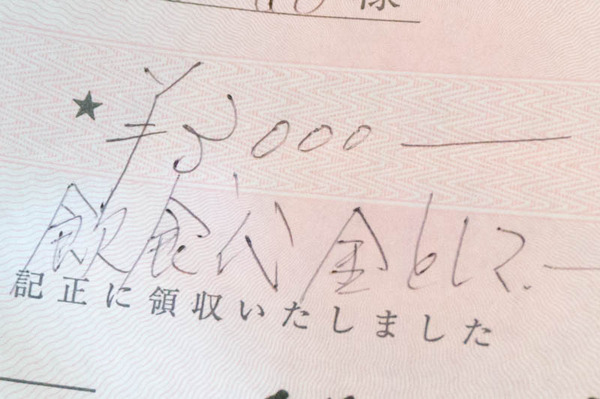 様
★ ¥3000ー
飲食代金として.ー
記正に領収いたしました